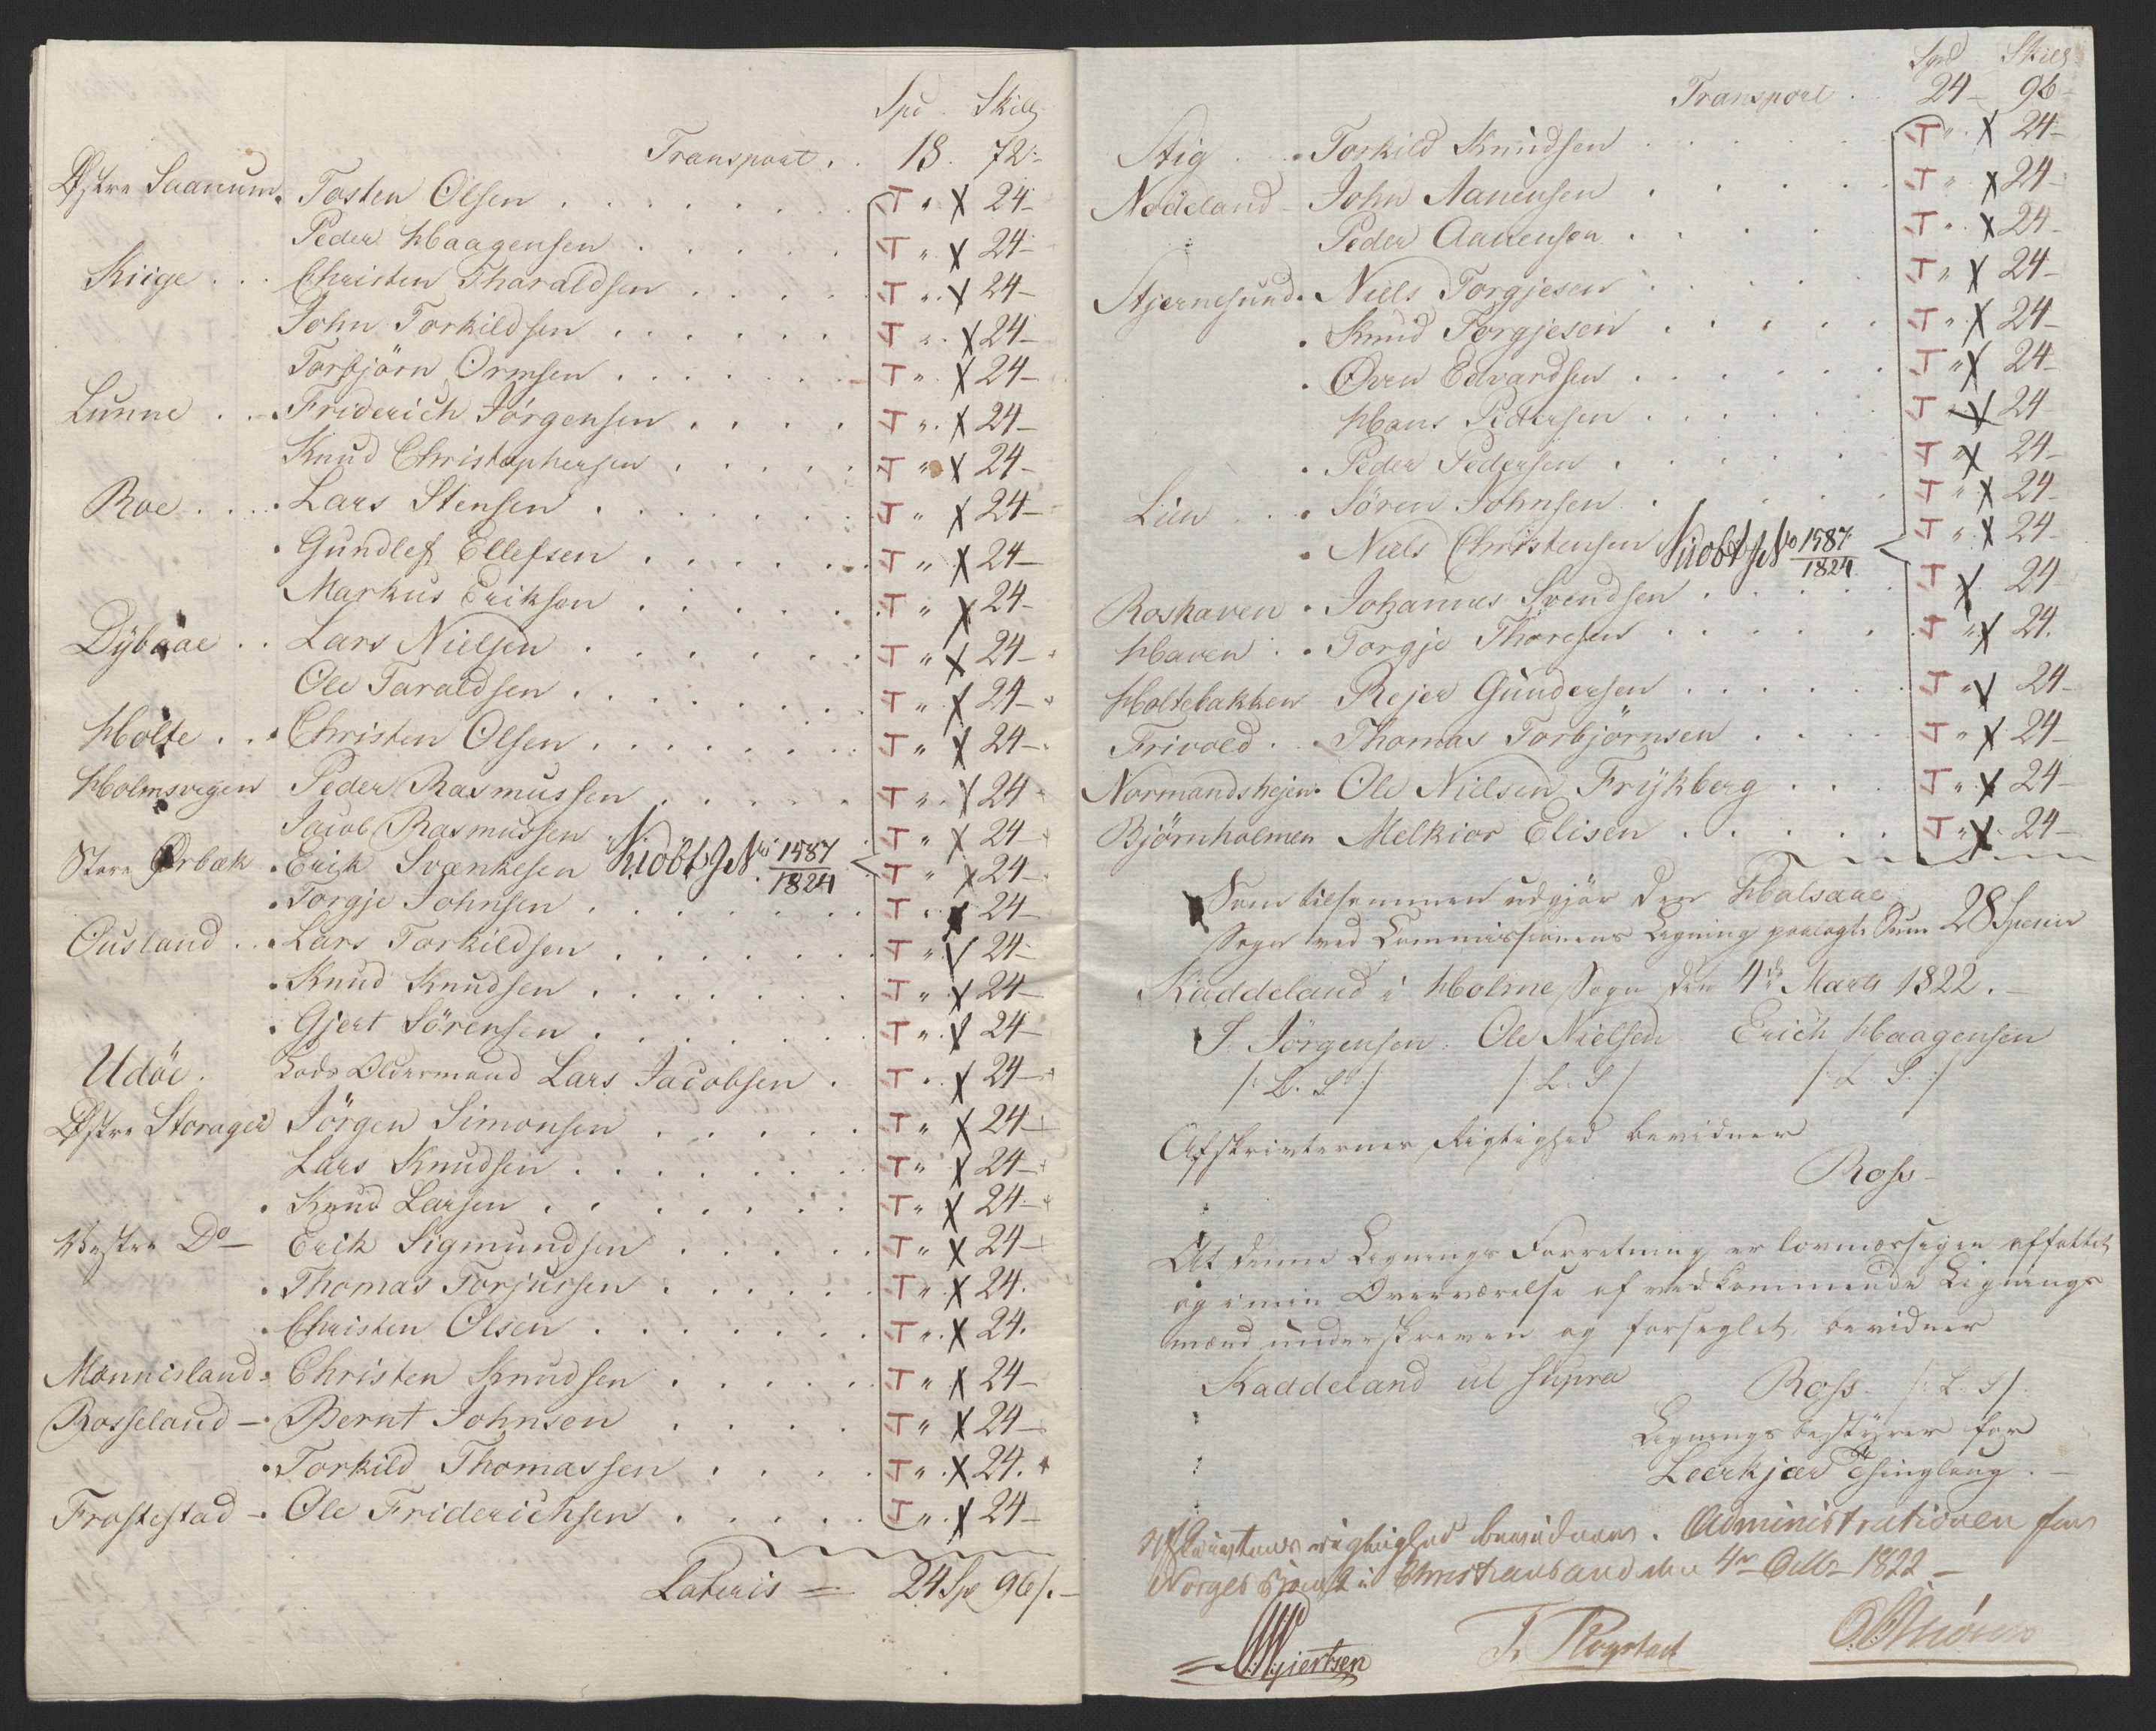 Spd. Skillg
Transport . . 18. 72:-
Østre Saanum. Tosten Olsen . . . . . . . T " X 24-
Peder Haagensen . . . . . T " X 24-
Kiige . . . Christen Tharaldsen . . . . . T " X 24-
John Torkildsen . . . . . . T " X 24-
Torbjörn Ormsen . . . . . . T " X 24-
Lunne . . . Friderich Jörgensen . . . . T " X 24-
Knud Christophersen . . . . . T " X 24-
Roe . . . . Lars Stensen . . . . . . . T " X 24-
. Gundlef Ellefsen . . . . . . T " X 24-
Markus Eriksen . . . . . . T " X 24-
Dybaae . . Lars Nielsen . . . . . . . T " X 24-
Ole Taraldsen . . . . . . . T " X 24-
Holte . . . Christen Olsen . . . . . . . T " X 24-
Holmsvigen Peder Rasmussen . . . . . T " X 24-
Jacob Rasmussen T " X 24-
Store Ørbæk . Erik Svenkesen 1587/1824 T " X 24-
. Torgje Johnsen . . . . . . . T " X 24-
Ousland . . . Lars Torkildsen . . . . . . T " X 24-
. Knud Knudsen . . . . . . T " X 24-
. Gjert Sörensen . . . . . . T " X 24-
Udöe . Lods Oldermand Lars Jacobsen . T " X 24-
Østre Storager Jörgen Simonsen . . . . . T " X 24-
Lars Knudsen . . . . . . . T " X 24-
. Knud Larsen . . . . . . . T " X 24-
Westre Do - Erik Sigmundsen . . . . . T " X 24-
. Thomas Torjussen . . . . . T " X 24.
. Christen Olsen . . . . . . . T " X 24.
Mannisland . Christen Knudsen . . . . . T " X 24-
Rosseland - . Bernt Johnsen . . . . T " X 24-
. Torkild Thomassen . . . . T " X 24.
Frostestad - . Ole Friderichsen . . . . . T " X 24-
Lateris = 24 Sp 96 s. -
Spd Skillg
Transport . 24- 96-
Stig . . . Torkild Knudsen . . . . . T " X 24-
Nödeland - John Aanensen . . . . . T " X 24-
Peder Aanensen . . . . . T " X 24-
Stjernesund . Niels Torgjesen . . . . . T " X 24-
. Knud Torgjesen . . . . . T " X 24-
. Øven Edvardsen . . . . . . T " X 24-
Hans Pedersen . . . . . T " X 24
. Peder Pedersen . . . . . T " X 24-
Lien . . . Sören Johnsen . . . . . T " X 24-
. Niels Christensen 1587/1824 T " X 24-
Roshaven . Johannes Svendsen . . . . . T X 24
Haven . . Torgje Thoresen . . . . . . T " X 24.
Holtebakken Rejer Gundersen . . . . . . T " X 24-
Frivold . . Thomas Torbjörnsen . . . . T " X 24-
Normandshejen . Ole Nielsen Frykberg . . . T " X 24-
Björnholmen Melkior Elisen . . . . . T " X 24-
Som tilsammen udgjør den Halsaae
Sogn ved Commissionens Ligning paalagte Sum 28 Specier
Kaddeland i Holme Sogn den 4de Marts 1822. -
S. Jörgensen. Ole Nielsen Erich Haagensen
/: L. S. :/ /: L. S /: L. S. :/
Afskrivternes Rigtighed bevidner
Ross-
At denne Lignings Forretning er lovmæssigen affattet
og i min Overværelse af vedkommende Lignings
mænd underskreven og forseglet, bevidner
Kaddeland ut supra Ross. /: L. S /
Lignings bestyrer for
Leerkjær Thinglaug . -
Afskrivtens rigtighed bevidner . Administrationen for
Norges Bank i Christiansand den 4de Octbr 1822 -
Gjertsen F. Rogstad